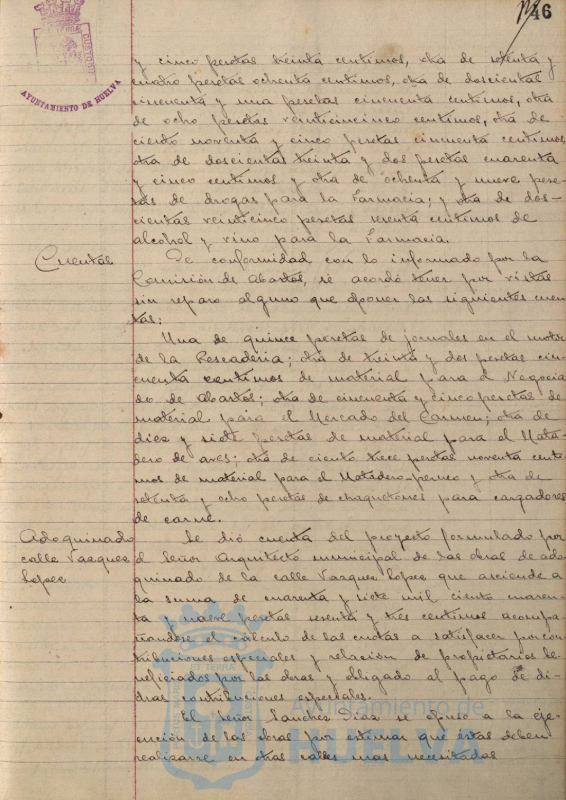 46
AYUNTAMIENTO DE HUELVA
y cinco pesetas treinta centimos, otra de setenta y
cuatro pesetas ochenta centimos, otra de doscientas
cincuenta y una pesetas cincuenta centimos, otra
de ocho pesetas veinticinco centimos, otra de
ciento noventa y cinco pesetas cincuenta centimos,
otra de doscientas treinta y dos pesetas cuarenta
y cinco centimos y otra de ochenta y nueve pese-
tas de drogas para la Farmacia; y otra de dos-
cientas veinticinco pesetas sesenta centimos de
alcohol y vino para la Farmacia.
Cuentas
De conformidad con lo informado por la
Comisión de Abastos, se acordó tener por vistas
sin reparo alguno que oponer las siguientes cuen-
tas:
Una de quince pesetas de jornales en el motor
de la Pescaderia; otra de treinta y dos pesetas cin-
cuenta centimos de material para el Negocia
do de Abastos; otra de cincuenta y cinco pesetas de
material para el Mercado del Carmen; otra de
diez y siete pesetas de material para el Mata-
dero de aves; otra de ciento trece pesetas noventa cents-
mos de material para el Matadero-perneo y otra de
setenta y ocho pesetas de chaquetones para cargadores
de carne.
Adoquinado
calle Vazquez
Lopez
Se dió cuenta del proyecto formulado por
el Señor Arquitecto municipal de las obras de ado-
quinado de la calle Vazquez Lopez que asciende a
la suma de cuarenta y siete mil ciento cuaren-
ta y nueve pesetas sesenta y tres centimos acompa-
ñandose el cálculo de las cuotas a satisfacer por con-
tribuciones especiales y relación de propietarios be-
neficiados por las obras y obligado al pago de di-
chas contribuciones especiales.
El Señor Sanchez Diaz se opuso a la eje-
cución de las obras por estimar que éstas deben
realizarse en otras calles mas necesitadas
Ayuntamiento de
HUELVA